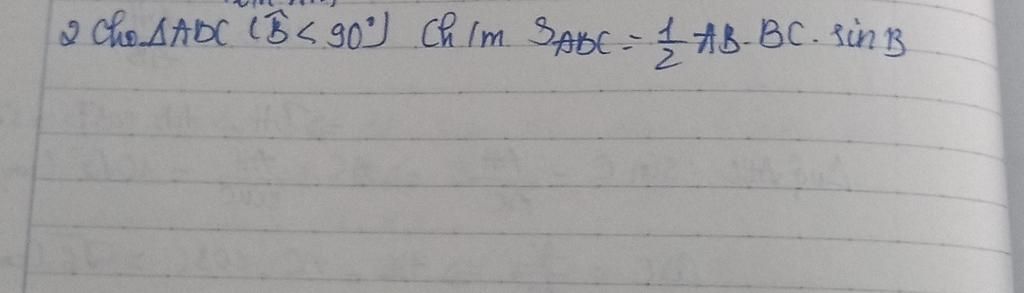 2 Cho ΔABC (B̂ < 90°) Ch/m S_ABC = 1/2 AB. BC. sin B